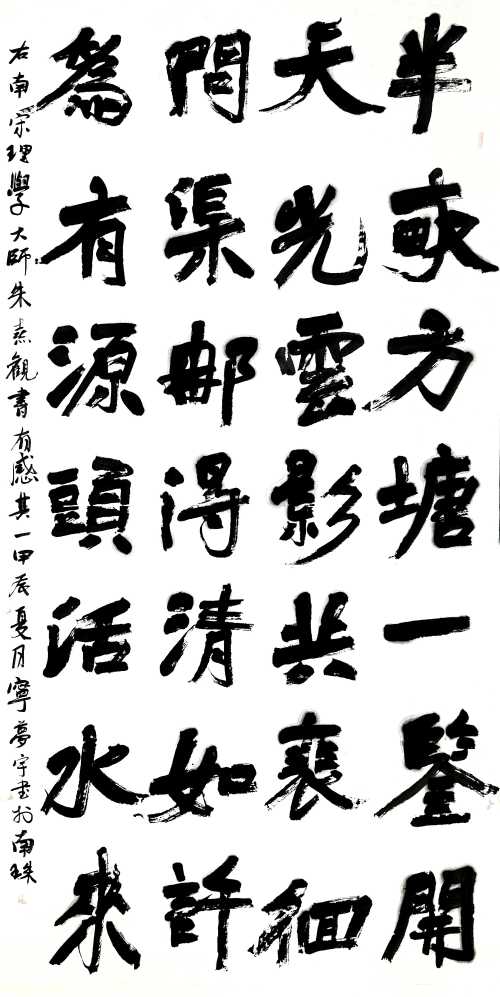 半畝方塘一鑒開
天光雲影共裵徊
問渠那得清如許
為有源頭活水來
右南宋理學大師朱熹觀書有感其一甲辰夏月寧夢宇書於南珠